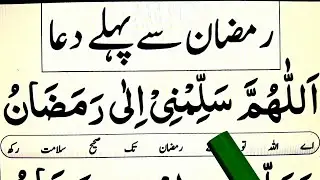 رمضان سے پہلے دعا
اَللّٰهُمَّ سَلِّمْنِیْ اِلٰی رَمَضَانُ
اے اللہ تو رمضان تک صحیح سلامت رکھ